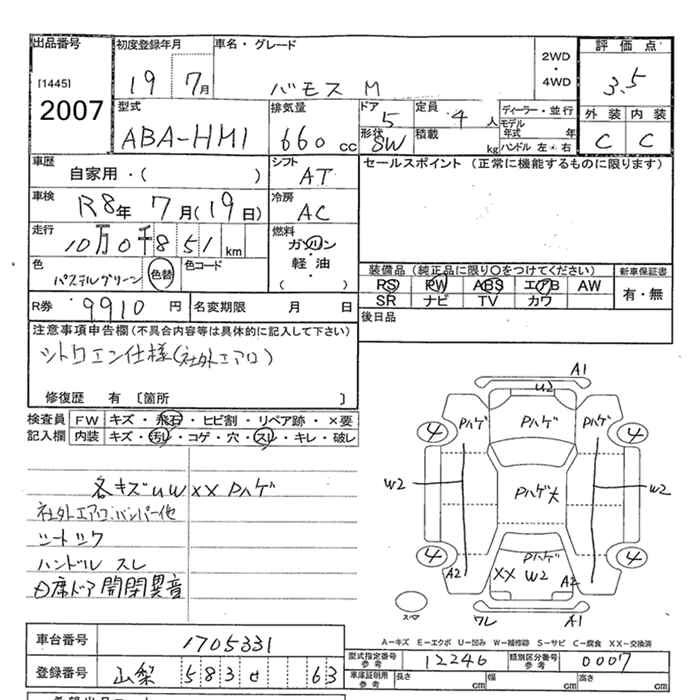 出品番号 初度登録年月 車名・グレード 2WD・4WD 評価点
[1445] 2007 19 7月 バモス M 3.5
型式 排気量 ドア 定員 ディーラー・並行 外装 内装
ABA-HM1 660cc 5 4人 モデル年式 年 C C
形状 SW 積載 kg ハンドル 左・右
車歴 自家用・( ) シフト AT セールスポイント (正常に機能するものに限ります)
車検 R8年 7月(19日) 冷房 AC
走行 10万0千851km 燃料 ガソリン・軽油・( )
色 パステルグリーン 色替 色コード
装備品 (純正品に限り○をつけてください) 新車保証書
PS PW ABS エアB AW 有・無
SR ナビ TV カワ
R券 9910円 名変期限 月 日 後日品
注意事項申告欄(不具合内容等は具体的に記入して下さい)
シトロエン仕様(社外エアロ)
修復歴 有 [箇所 ]
検査員 FW キズ・飛石・ヒビ割・リペア跡・×要
記入欄 内装 キズ・汚レ・コゲ・穴・スレ・キレ・破レ
各キズUW XX Pハゲ
社外エアロ.バンパー他
シートシワ
ハンドル スレ
D席ドア 開閉異音
A1
U2
Pハゲ Pハゲ Pハゲ
4 4
W2 Pハゲ大 W2
4 4
Pハゲ
A2 XX W2 A2
スペア ワレ A1
A−キズ E−エクボ U−凹み W−補修跡 S−サビ C−腐食 XX−交換済
車台番号 1705331
型式指定番号 参考 12246 類別区分番号 参考 0007
登録番号 山梨 583 せ 63
車庫証明用 参考 長さ cm 幅 cm 高さ cm